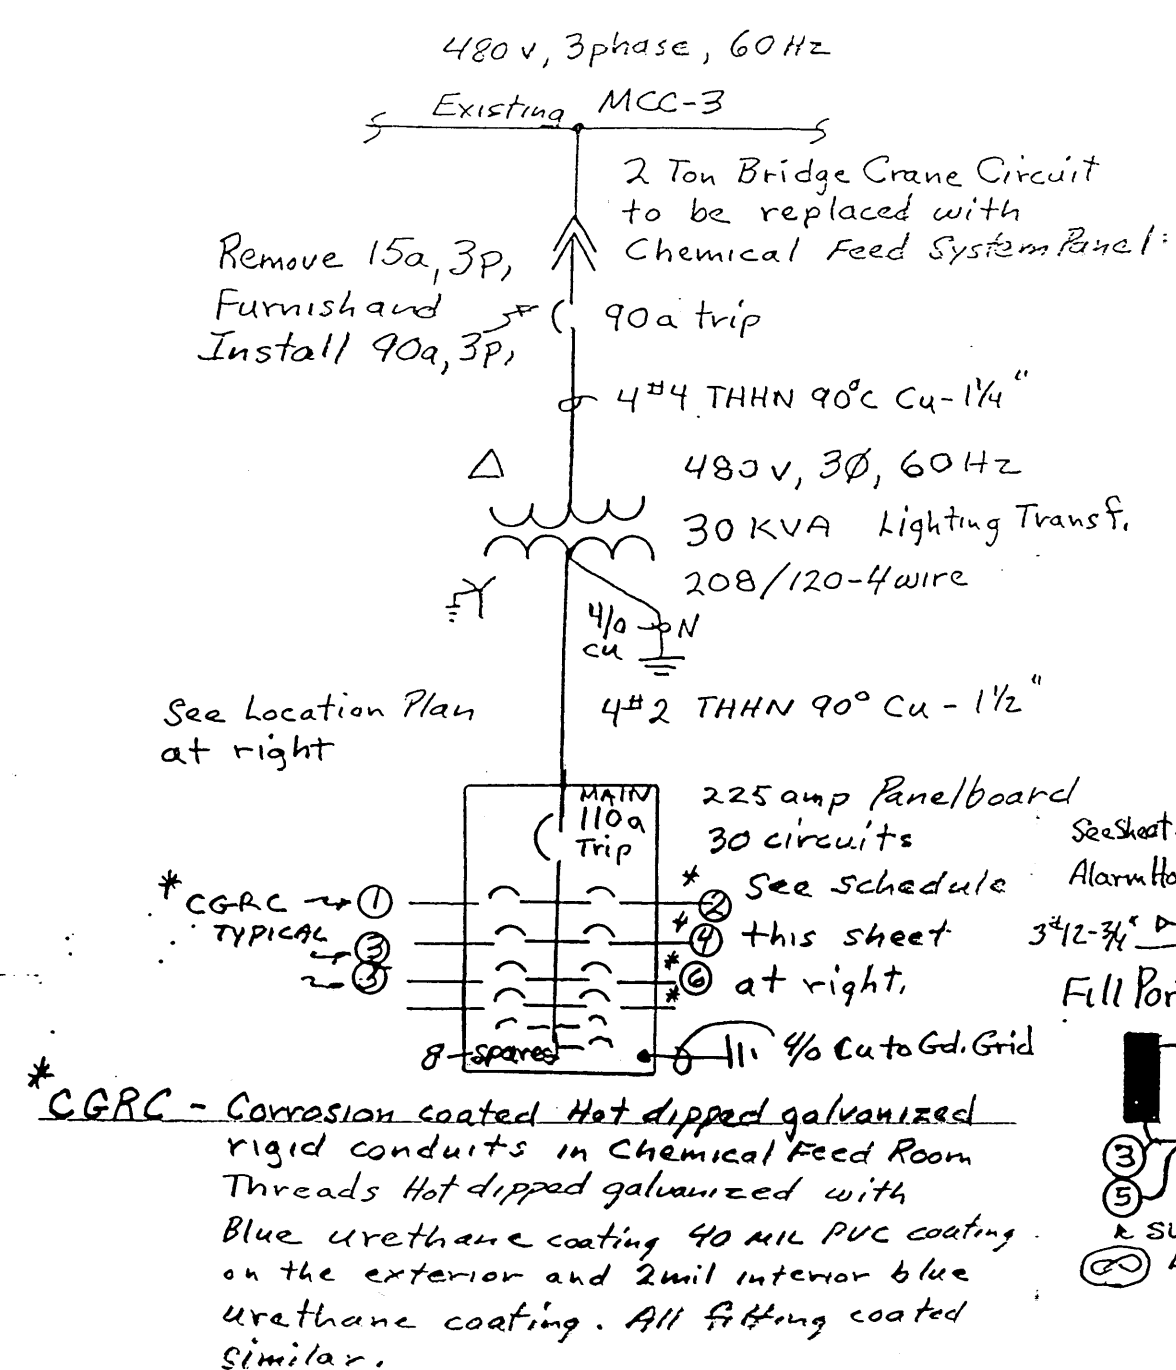 480 v, 3phase, 60 Hz
Existing MCC-3
2 Ton Bridge Crane Circuit
to be replaced with
Chemical Feed System Panel:
Remove 15a, 3p,
Furnish and
Install 90a, 3p,
90a trip
4 #4 THHN 90°C Cu - 1¼"
△
480 v, 3Ø, 60 Hz
30 KVA Lighting Transf.
208/120-4 wire
4/0
cu
N
See Location Plan
at right
4 #2 THHN 90° Cu - 1½"
MAIN
110a
Trip
225 amp Panelboard
30 circuits
See schedule
this sheet
at right.
* CGRC
TYPICAL
① ③ ⑤
* ②
* ④
* ⑥
*
8 - spares
4/0 Cu to Gd. Grid
See Sheet
Alarm Ho
3#12-¾"
Fill Por
③
⑤
* CGRC - Corrosion coated Hot dipped galvanized
rigid conduits in Chemical Feed Room
Threads Hot dipped galvanized with
Blue urethane coating 40 MIL PVC coating
on the exterior and 2mil interior blue
urethane coating. All fitting coated
similar.